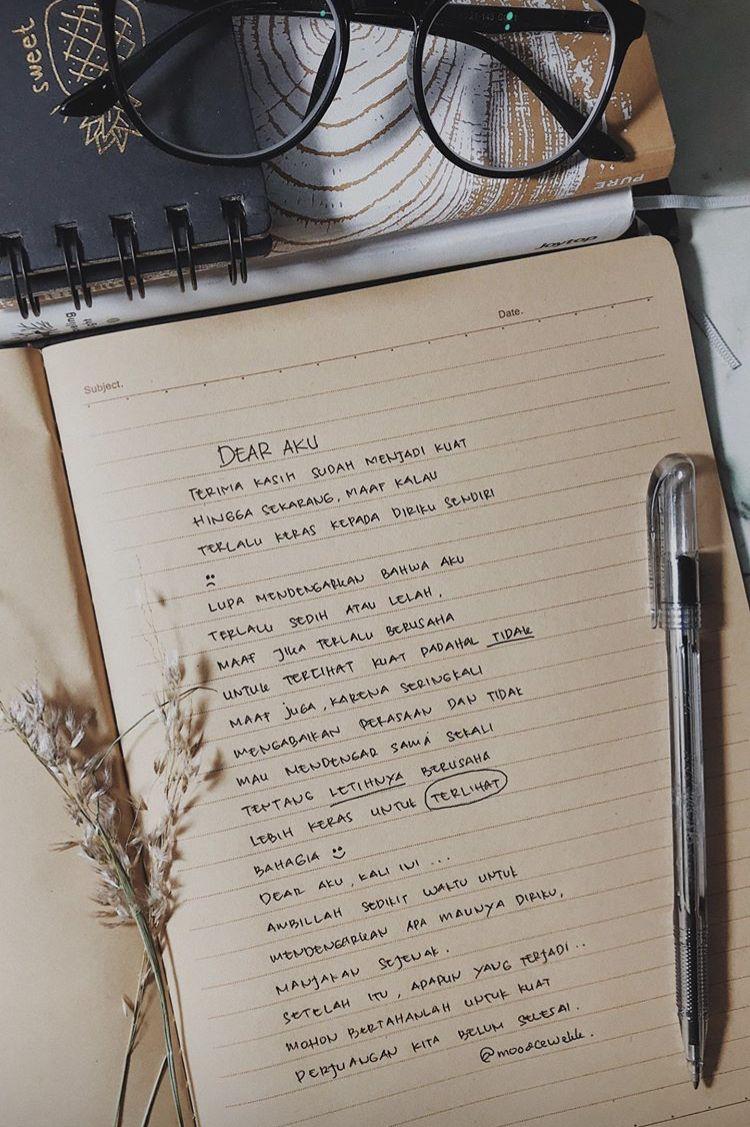 sweet
PURE
Joytop
Date.
Subject.
DEAR AKU
TERIMA KASIH SUDAH MENJADI KUAT
HINGGA SEKARANG, MAAF KALAU
TERLALU KERAS KEPADA DIRIKU SENDIRI
LUPA MENDENGARKAN BAHWA AKU
TERLALU SEDIH ATAU LELAH,
MAAF JIKA TERLALU BERUSAHA
UNTUK TERLIHAT KUAT PADAHAL TIDAK
MAAF JUGA, KARENA SERINGKALI
MENGABAIKAN PERASAAN DAN TIDAK
MAU MENDENGAR SAMA SEKALI
TENTANG LETIHNYA BERUSAHA
LEBIH KERAS UNTUK TERLIHAT
BAHAGIA
DEAR AKU, KALI INI ...
AMBILLAH SEDIKIT WAKTU UNTUK
MENDENGARKAN APA MAUNYA DIRIKU,
MANJAKAN SEJENAK.
SETELAH ITU, APAPUN YANG TERJADI..
MOHON BERTAHANLAH UNTUK KUAT
PERJUANGAN KITA BELUM SELESAI.
@moodcewekk.